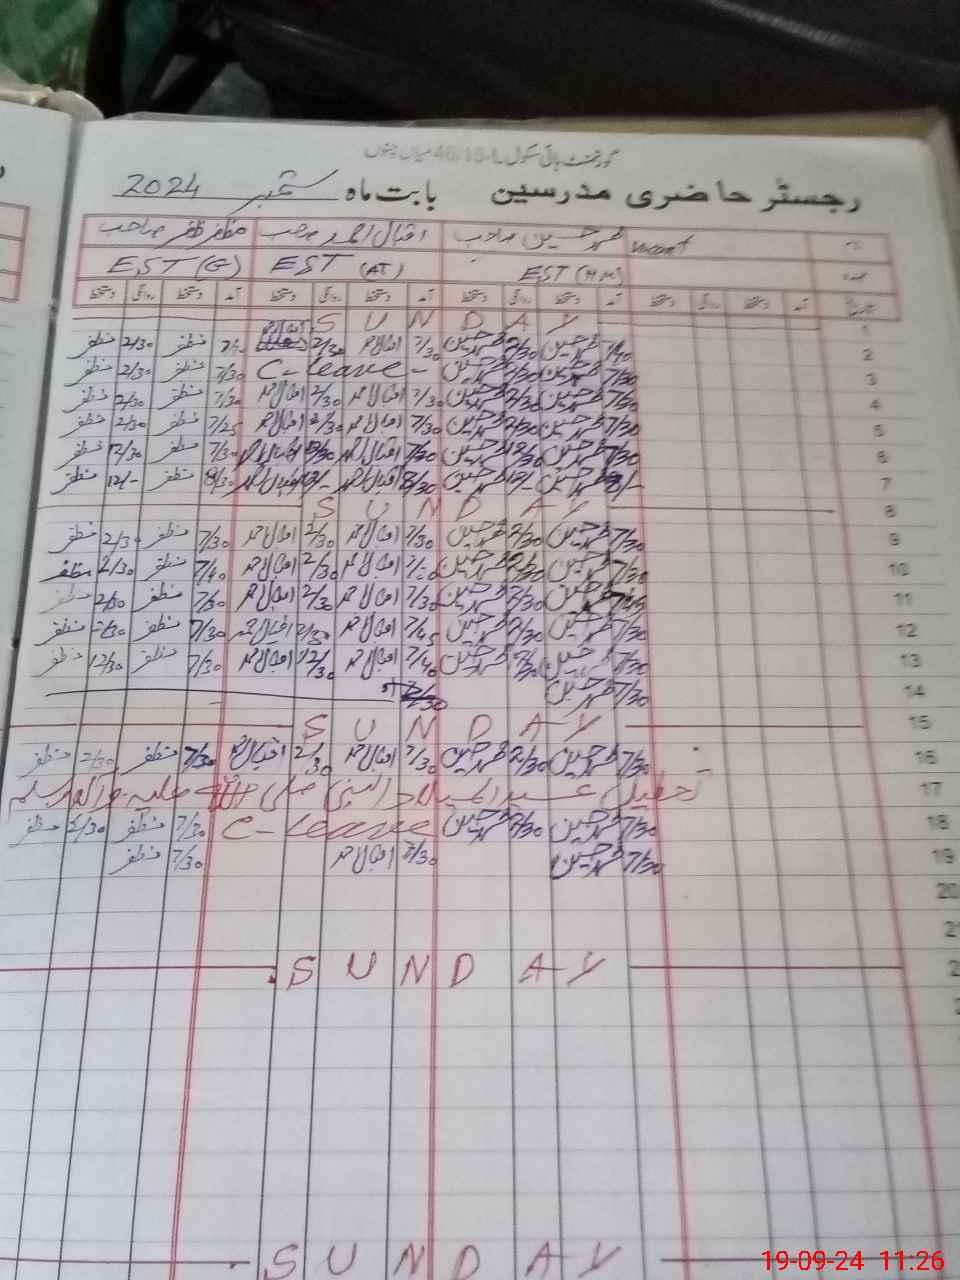 گورنمنٹ ہائی سکول 46/15-L میاں چنوں
رجسٹر حاضری مدرسین بابت ماہ ستمبر 2024
نام Vacant محمد حسین صاحب اقبال احمد صاحب مظفر ظفر صاحب
عہدہ EST (H.M) EST (AT) EST (G)
تاریخ آمد دستخط روانگی دستخط آمد دستخط روانگی دستخط آمد دستخط روانگی دستخط آمد دستخط روانگی دستخط
1 SUNDAY
2 7/40 2/30 7/30 اقبال احمد 2/30 مظفر 2/30 مظفر
3 7/30 2/30 C-leave 7/30 مظفر 2/30 مظفر
4 7/30 2/30 7/30 اقبال احمد 2/30 اقبال احمد 7/30 مظفر 2/30 مظفر
5 7/30 2/30 7/30 اقبال احمد 2/30 اقبال احمد 7/25 مظفر 2/30 مظفر
6 7/30 12/30 7/30 اقبال احمد 12/30 اقبال احمد 7/30 مظفر 12/30 مظفر
7 8/- 12/- 8/30 اقبال احمد 12/- اقبال احمد 8/30 مظفر 12/- مظفر
8 SUNDAY
9 7/30 2/30 7/30 اقبال احمد 2/30 اقبال احمد 7/30 مظفر 2/30 مظفر
10 7/30 2/30 اقبال احمد 2/30 اقبال احمد 7/40 مظفر 2/30 مظفر
11 2/30 7/30 اقبال احمد 2/30 اقبال احمد 7/30 مظفر 2/30 مظفر
12 7/30 2/30 7/45 اقبال احمد 2/30 اقبال احمد 7/30 مظفر 2/30 مظفر
13 7/30 7/40 اقبال احمد 12/30 اقبال احمد 7/30 مظفر 12/30 مظفر
14 7/30 محمد حسین
15 SUNDAY
16 7/30 محمد حسین 2/30 محمد حسین 7/30 اقبال احمد 2/30 اقبال احمد 7/30 مظفر 2/30 مظفر
17 تعطیل عید المیلاد النبی صلی اللہ علیہ وآلہ وسلم
18 7/30 محمد حسین 2/30 محمد حسین C-Leave 7/30 مظفر 2/30 مظفر
19 7/30 محمد حسین 7/30 اقبال احمد 7/30 مظفر
20
SUNDAY
SUNDAY
19-09-24 11:26